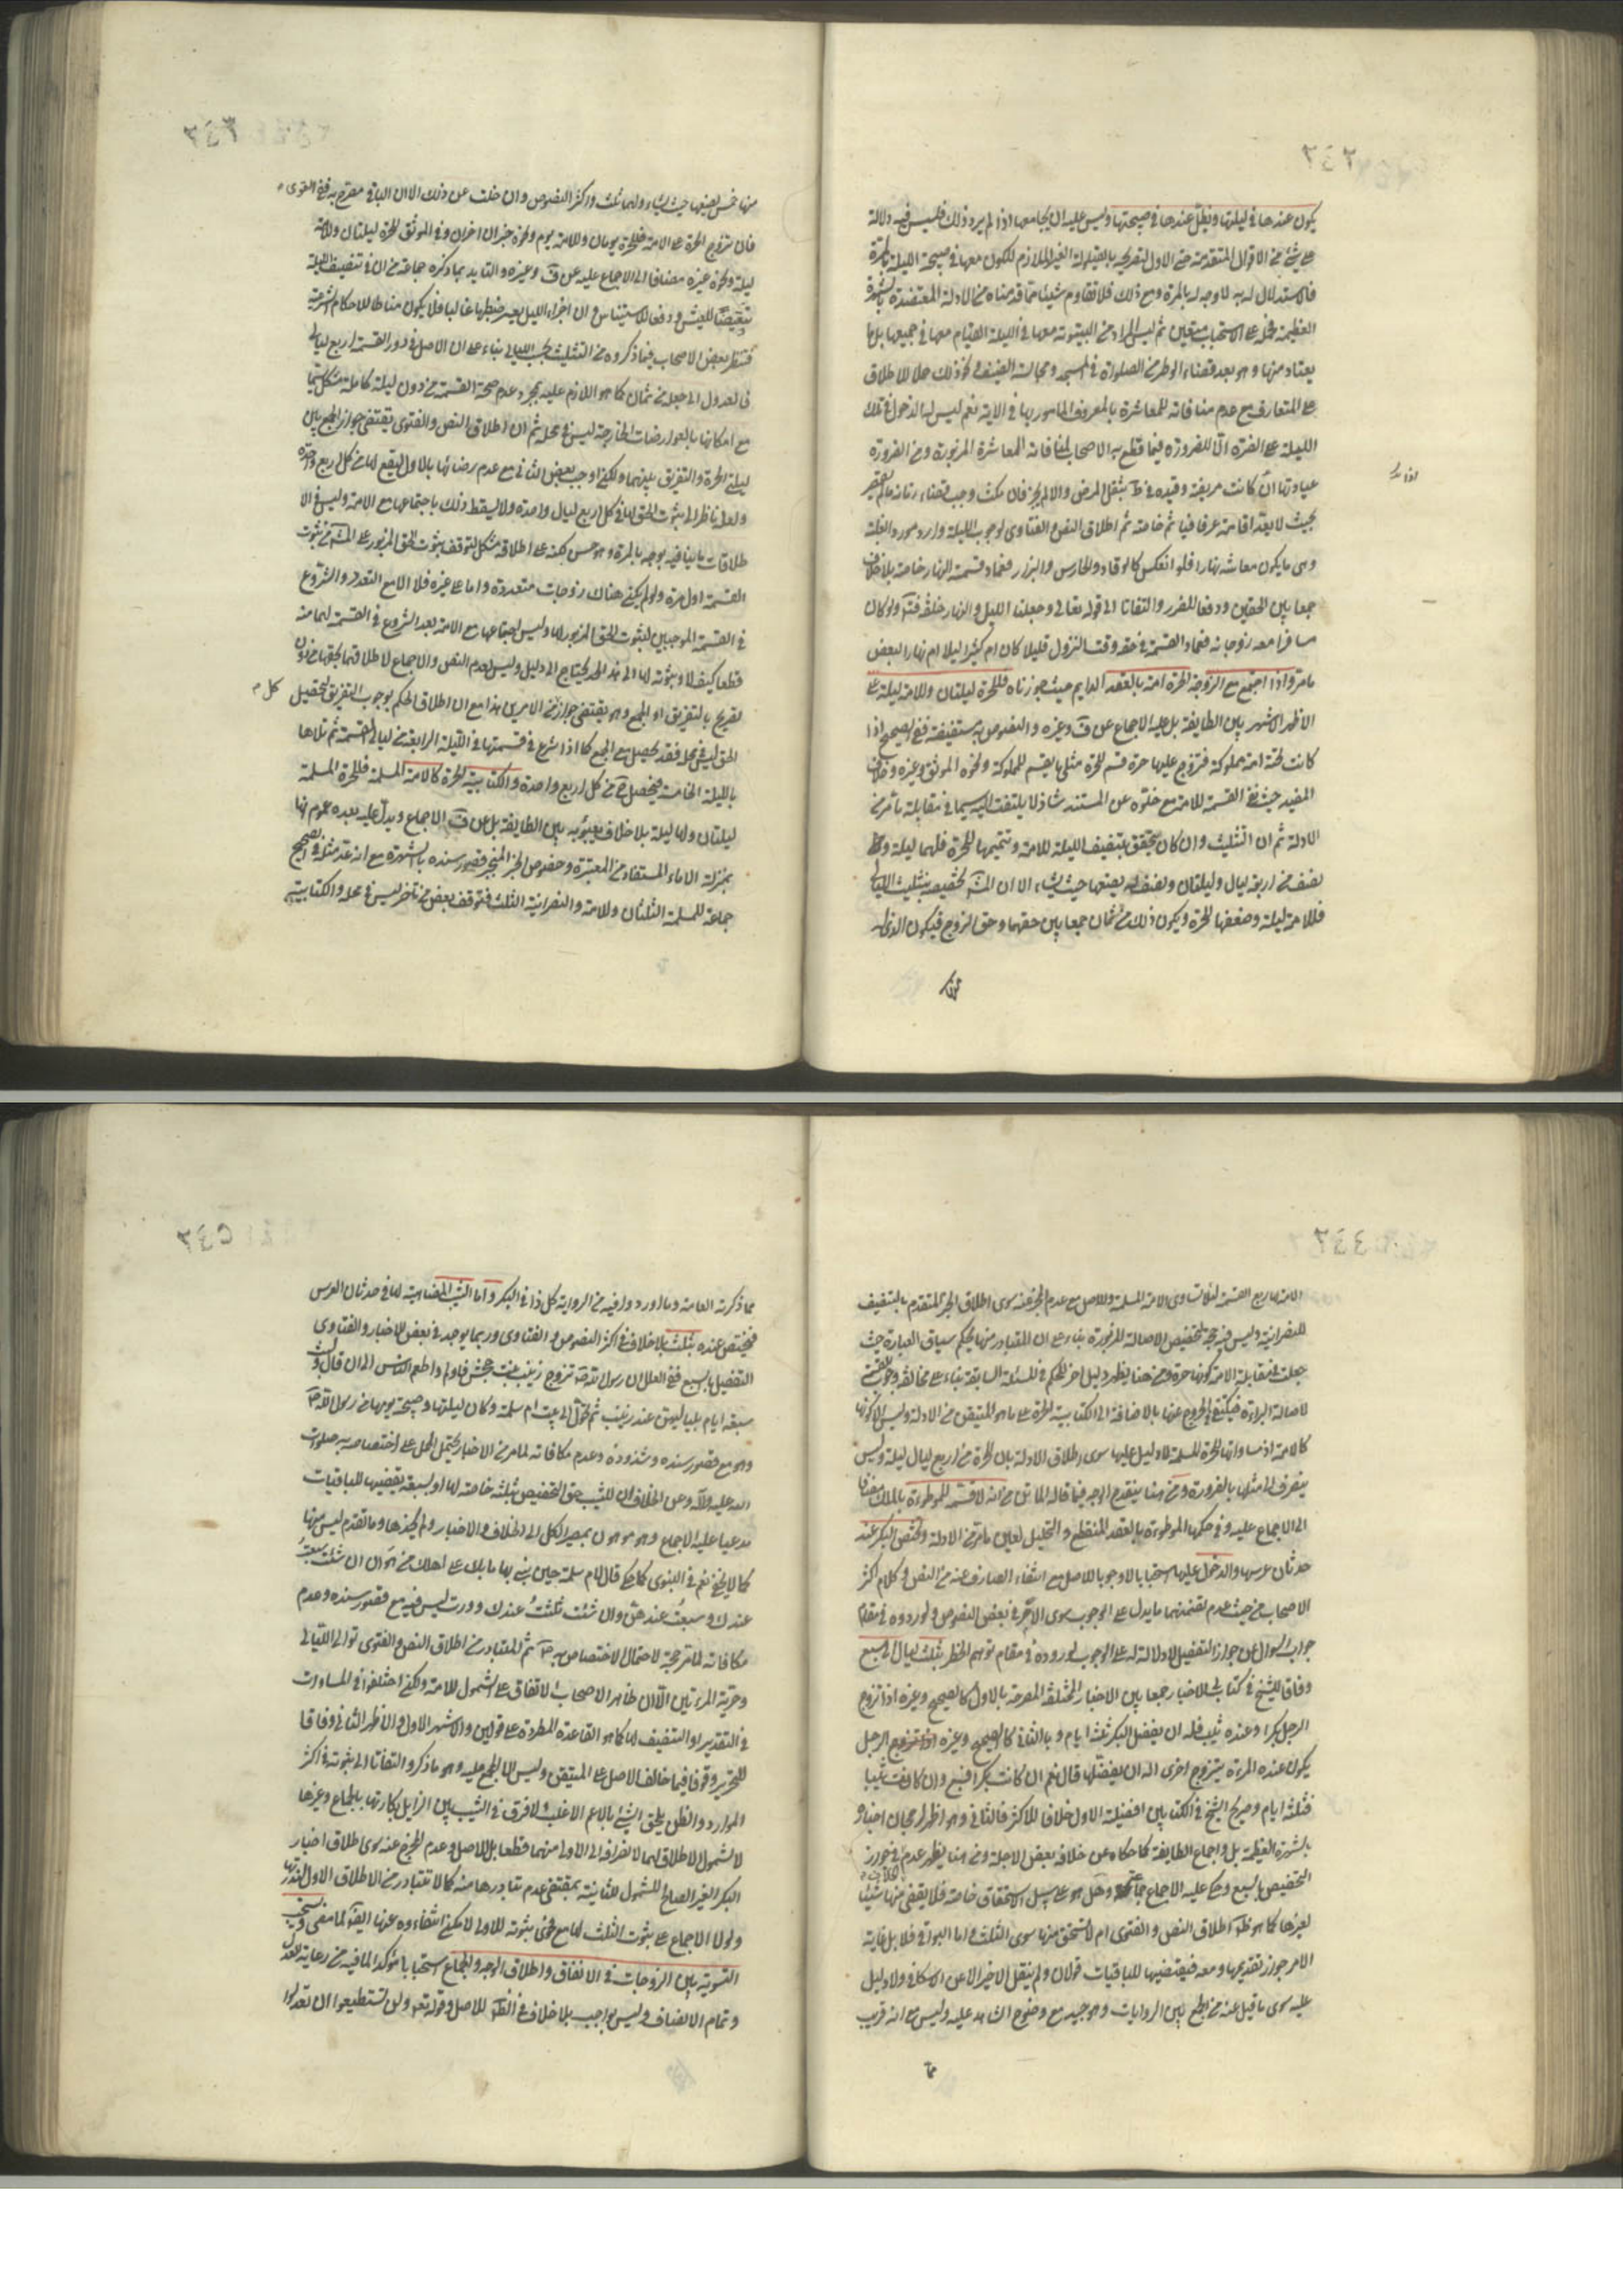 يكون عندها في ليلتها ويظل عندها في صبيحتها وليس عليه ان يجامعها اذا لم يرد ذلك فليس فيه دلالة
على شئ من الاقوال المتقدمة حتى الاول لتصريحه بالقيلولة الغير الملازم للكون معها في صبيحة الليلة بالمرة
فالاستدلال له به لا وجه له بالمرة ومع ذلك فلا تقاوم شيئا مما قدمناه من الادلة المعتضدة بالشهرة
العظيمة فحمله على الاستحباب متعين ثم ليس المراد من البيتوتة معها في الليلة القيام معها في جميعها بل ما
يعتاد منها وهو بعد قضاء الوطر من الصلوة في المسجد ومجالسة الضيف ونحو ذلك حملا للاطلاق
على المتعارف مع عدم منافاته للمعاشرة بالمعروف المامور بها في الاية نعم ليس له الدخول في تلك
الليلة على الضرة الا للضرورة فيما قطع به الاصحاب لمنافاته للمعاشرة المزبورة ومن الضرورة
عيادتها ان كانت مريضة وقيده في ط بثقل المرض والا لم يجز فان مكث وجب قضاء زمانه ما لم يقصر
بحيث لا يعد اقامة عرفا فياثم خاصة ثم اطلاق النص والفتاوى لوجوب الليلة وارد مورد الغلبة
وهى ما يكون معاشه نهارا فلو انعكس كالوقاد والحارس والبزر فعماد قسمته النهار خاصة بلا خلاف
جمعا بين الحقين ودفعا للضرر والتفاتا الى قوله تعالى وجعلنا الليل والنهار خلفة فتم ولو كان
مسافرا معه زوجاته فعماد القسمة في حقه وقت النزول قليلا كان ام كثيرا ليلا ام نهارا لبعض
ما مر واذا اجتمع مع الزوجة الحرة امة بالعقد الدايم حيث جوزناه فللحرة ليلتان وللامة ليلة على
الاظهر الاشهر بين الطايفة بل عليه الاجماع عن ف وغيره والنصوص به مستفيضة ففى الصحيح اذا
كانت تحته امة مملوكة فتزوج عليها حرة قسم للحرة مثلى ما يقسم للمملوكة ونحوه الموثق وغيره وخلاف
المفيد حيث نفى القسمة للامة مع خلوه عن المستند شاذ لا يلتفت اليه سيما في مقابلة ما مر من
الادلة ثم ان التثليث وان كان يتحقق بتنصيف الليلة للامة وتتميمها للحرة فلهما ليلة ونصف
نصف من اربع ليال وليلتان ونصف له يضعها حيث يشاء الا ان المش تخصيصه بتثليث الليالى
فللامة ليلة وضعفها للحرة ويكون ذلك من ثمان جمعا بين حقهما وحق الزوج فيكون الذى له
منها
٢٤٢
منها خمس يضعها حيث يشاء ولهما ثلث واكثر النصوص وان خلت عن ذلك الا ان الباقى مصرح به ففى القوى
فان تزوج الحرة على الامة فللحرة يومان وللامة يوم ونحوه خبران اخران وفي الموثق للحرة ليلتان وللامة
ليلة ونحوه غيره مضافا الى الاجماع عليه عن ف وغيره والتاييد بما ذكره جماعة من ان في تنصيف الليلة
تنغيصا للعيش ودفعا للاستيناس وان اجزاء الليل يعسر ضبطها غالبا فلا يكون مناطا للاحكام الشرعية
فتنظر بعض الاصحاب فيما ذكروه من التثليث بحسب الليالى بناء على ان الاصل في دور القسمة اربع ليالى
فالعدول الى جعله من ثمان كما هو اللازم عليه بمجرد عدم صحة القسمة من دون ليلة كاملة مشكل سيما
مع امكانها بالعوارضات الخارجة ليس في محله ثم ان اطلاق النص والفتوى يقتضى جواز الجمع بين
ليلتى الحرة والتفريق بينهما ولكن اوجب بعض الثانى مع عدم رضائها بالاول ليقع لها من كل اربع واحدة
ولعله ناظر الى ثبوت الحق لها في كل اربع ليال واحدة ولا يسقط ذلك باجتماعها مع الامة وليس في الا
طلاقات ما ينافيه بوجه بالمرة وهو حسن لكنه على اطلاقه مشكل لتوقف ثبوت الحق المزبور على المش من ثبوت
القسمة اول مرة ولو لم يكن هناك زوجات متعددة واما على غيره فلا الا مع التعدد والشروع
في القسمة الموجبين لثبوت الحق المزبور لها وليس اجتماعها مع الامة بعد الشروع في القسمة لهما منه
قطعا كيف لا وثبوته لها الى هذا الحد يحتاج الى دليل وليس لعدم النص والاجماع لاطلاقهما بحقها من دون
تصريح بالتفريق او الجمع وهو يقتضى جواز من الامرين هذا مع ان اطلاق الحكم بوجوب التفريق لتحصيل كل
الحق ليس في محله فقد يحصل مع الجمع كما اذا شرع في قسمتها في الليلة الرابعة من ليالى القسمة ثم تلاها
بالليلة الخامسة فيحصل ح من كل اربع واحدة والكتابية الحرة كالامة المسلمة فللحرة المسلمة
ليلتان ولها ليلة بلا خلاف يعبؤ به بين الطايفة بل عن ف الاجماع ويدل عليه بعده عموم انها
بمنزلة الاماء المستفاد من المعتبرة وخصوص الخبر المنجبر قصور سنده بالشهرة مع انه عد مثله في الصحيح
جماعة للمسلمة الثلثان وللامة والنصرانية الثلث فتوقف بعض من تاخر ليس في محله وللكتابية
٢٤٣
الامة ربع القسمة لئلا تساوى الامة المسلمة وللاصل مع عدم المخرج عنه سوى اطلاق الخبر المتقدم بالتنصيف
للنصرانية وليس فيه حجة لتخصيص الاصالة المزبورة بناء على ان المتبادر منها بحكم سياق العبارة حيث
جعلت في مقابلة الامة كونها حرة ومن هنا يظهر دليل اخر للحكم في المسئلة السابقة بناء على مخالفة وجوب القسمة
لاصالة البراءة فيكتفى في الخروج عنها بالاضافة الى الكتابية الحرة على ما هو المتيقن من الادلة وليس الا كونها
كالامة اذ مساواتها الحرة المسلمة لا دليل عليها سوى اطلاق الادلة بان للحرة من اربع ليال ليلة وليس
ينصرف الى مثلها بالضرورة ومن هنا ينقدح الوجه فيما قاله الماتن من انه لا قسمة للموطوءة بالملك مضافا
الى الاجماع عليه وفي حكمها الموطوءة بالعقد المنقطع والتحليل لعين ما مر من الادلة وتختص البكر عند
حدثان عرسها والدخول عليها استحبابا لا وجوبا للاصل مع انتفاء الصارف عنه من النص وكلام اكثر
الاصحاب من حيث عدم تضمنهما ما يدل على الوجوب سوى الامر في بعض النصوص ولوروده في مقام
جواب السوال عن جواز التفضيل لا دلالة له على الوجوب لوروده في مقام توهم الحظر بثلث ليال الى سبع
وفاقا للشيخ في كتابى الاخبار جمعا بين الاخبار المختلفة المصرحة بالاول كالصحيح وغيره اذا تزوج
الرجل بكرا وعنده ثيب فله ان يفضل البكر ثلثة ايام وبالثانى كالصحيح وغيره الرجل
يكون عنده المرءة يتزوج اخرى اله ان يفضلها قال نعم ان كانت بكرا فسبع وان كانت ثيبا
فثلثة ايام وصريح الشيخ في الكتابين افضلية الاول خلافا للاكثر فالثانى وهو اظهر لرجحان اخباره
بالشهرة العظيمة بل واجماع الطايفة كما حكاه عن خلافه بعض الاجلة ومن هنا يظهر عدم في جواز
التخصيص بالسبع وحكى عليه الاجماع جماعة وهل هو على سبيل الاستحقاق خاصة فلا يقضى منها شيئا
لغيرها كما هو ظ اطلاق النص والفتوى ام لا تستحق منها سوى الثلث واما البواقى فلا بل غاية
الامر جواز تقديمها ومعه فيقتضيها للباقيات قولان ولم ينقل الاخير الا عن الاسكافى ولا دليل
عليه سوى ما قيل عنه من الجمع بين الروايات وهو جيد مع وضوح الشاهد عليه وليس مع انه قريب
مما
٢٤٤
مما ذكرته العامة وما اورد ولفيه من الرواية كل ذا في البكر واما الثيب المضاهية لها في حدثان العرس
فيختص عنده بثلث بلا خلاف في اكثر النصوص والفتاوى وربما يوجد في بعض الاخبار والفتاوى
التفضيل بالسبع ففى العلل ان رسول الله ص تزوج زينب بنت جحش فاولم واطعم الناس الى ان قال ولبث
سبعة ايام بلياليهن عند زينب ثم تحول الى بيت ام سلمة وكان ليلتها وصبيحة يومها من رسول الله ص
وهو مع قصور سنده وشذوذه وعدم مكافاته لما مر من الاخبار يحتمل الحمل على اختصاصه به صلوات
الله عليه وآله وعن الخلاف ان للثيب حق التخصيص بثلثة خاصة لها او بسبعة يقضيها للباقيات
مدعيا عليه الاجماع وهو موهون بمصير الكل الى الخلاف والاخبار ولم نجدها وما تقدم ليس منها
كما لا يخفى نعم في النبوى كما حكى قال لام سلمة حين بنى بها ما بك على اهلك من هوان ان شئت سبعت
عندك وسبعت عندهن وان شئت ثلثت عندك ودرت وليس فيه مع قصور سنده وعدم
مكافاته لما مر حجة لاحتمال الاختصاص به ص ثم المتبادر من اطلاق النص والفتوى توالى الليالى
وحرية المرءتين الا ان ظاهر الاصحاب الاتفاق على الشمول للامة ولكن اختلفوا في المساوات
في التقدير او التنصيف لها كما هو القاعدة المطردة على قولين والاشهر الاول والاظهر الثانى وفاقا
للتحرير وقوفا فيما خالف الاصل على المتيقن وليس الا المجمع عليه وهو ما ذكر والتفاتا الى ثبوته في اكثر
الموارد والظن يلحق الشئ بالاعم الاغلب ولا فرق في الثيب بين الزايل بكارتها بالجماع وغيرها
لا لشمول الاطلاق لهما لانصرافه الى الاولى منهما قطعا بل للاصل وعدم المخرج عنه سوى اطلاق اخبار
البكر الغير الصالح للشمول للثانية بمقتضى عدم تبادرها منه كما لا تتبادر من الاطلاق الاول لندرتها
ولولا الاجماع على ثبوت الثلث لها مع ثبوته للاولى لامكن انتفاءوه عنها ايضا لما مضى ويستحب
التسوية بين الزوجات في الانفاق واطلاق الوجه والجماع استحبابا مؤكدا لما فيه من رعاية العدل
وتمام الانصاف وليس بواجب بلا خلاف في الظ للاصل وقوله تعه ولن تستطيعوا ان تعدلوا
٢٤٥